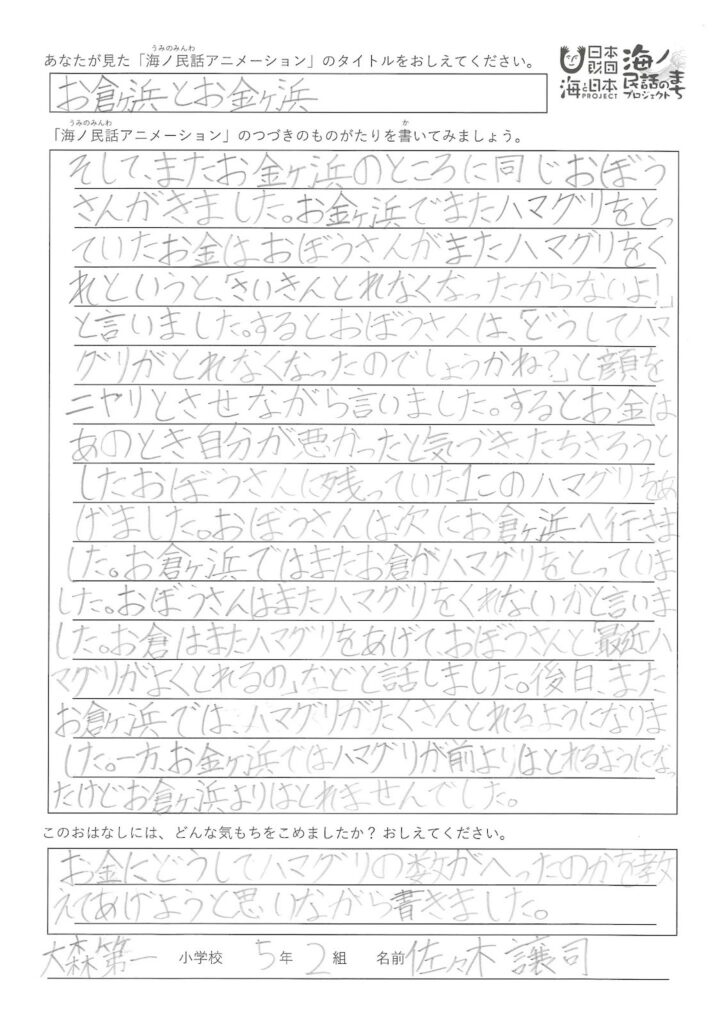 うみのみんわ
あなたが見た「海ノ民話アニメーション」のタイトルをおしえてください。
日本財団
海と日本PROJECT
海ノ民話のまちプロジェクト
お倉ヶ浜とお金ヶ浜
うみのみんわ
か
「海ノ民話アニメーション」のつづきのものがたりを書いてみましょう。
そして、またお金ヶ浜のところに同じおぼう
さんがきました。お金ヶ浜でまたハマグリをとっ
ていたお金はおぼうさんがまたハマグリをく
れというと、「さいきんとれなくなったからないよ!」
と言いました。するとおぼうさんは、「どうしてハマ
グリがとれなくなったのでしょうかね?」と顔を
ニヤリとさせながら言いました。するとお金は
あのとき自分が悪かったと気づき、たちさろうと
したおぼうさんに残っていた1このハマグリをあ
げました。おぼうさんは次にお倉ヶ浜へ行きま
した。お倉ヶ浜ではまたお倉がハマグリをとっていま
した。おぼうさんはまたハマグリをくれないかと言いま
した。お倉はまたハマグリをあげて、おぼうさんと「最近ハ
マグリがよくとれるの」などと話しました。後日、また
お倉ヶ浜では、ハマグリがたくさんとれるようになりま
した。一方、お金ヶ浜ではハマグリが前よりはとれるようになっ
たけどお倉ヶ浜よりはとれませんでした。
このおはなしには、どんな気もちをこめましたか? おしえてください。
お金にどうしてハマグリの数がへったのかを教
えてあげようと思いながら書きました。
大森第一 小学校 5年 2組 名前 佐々木 譲司